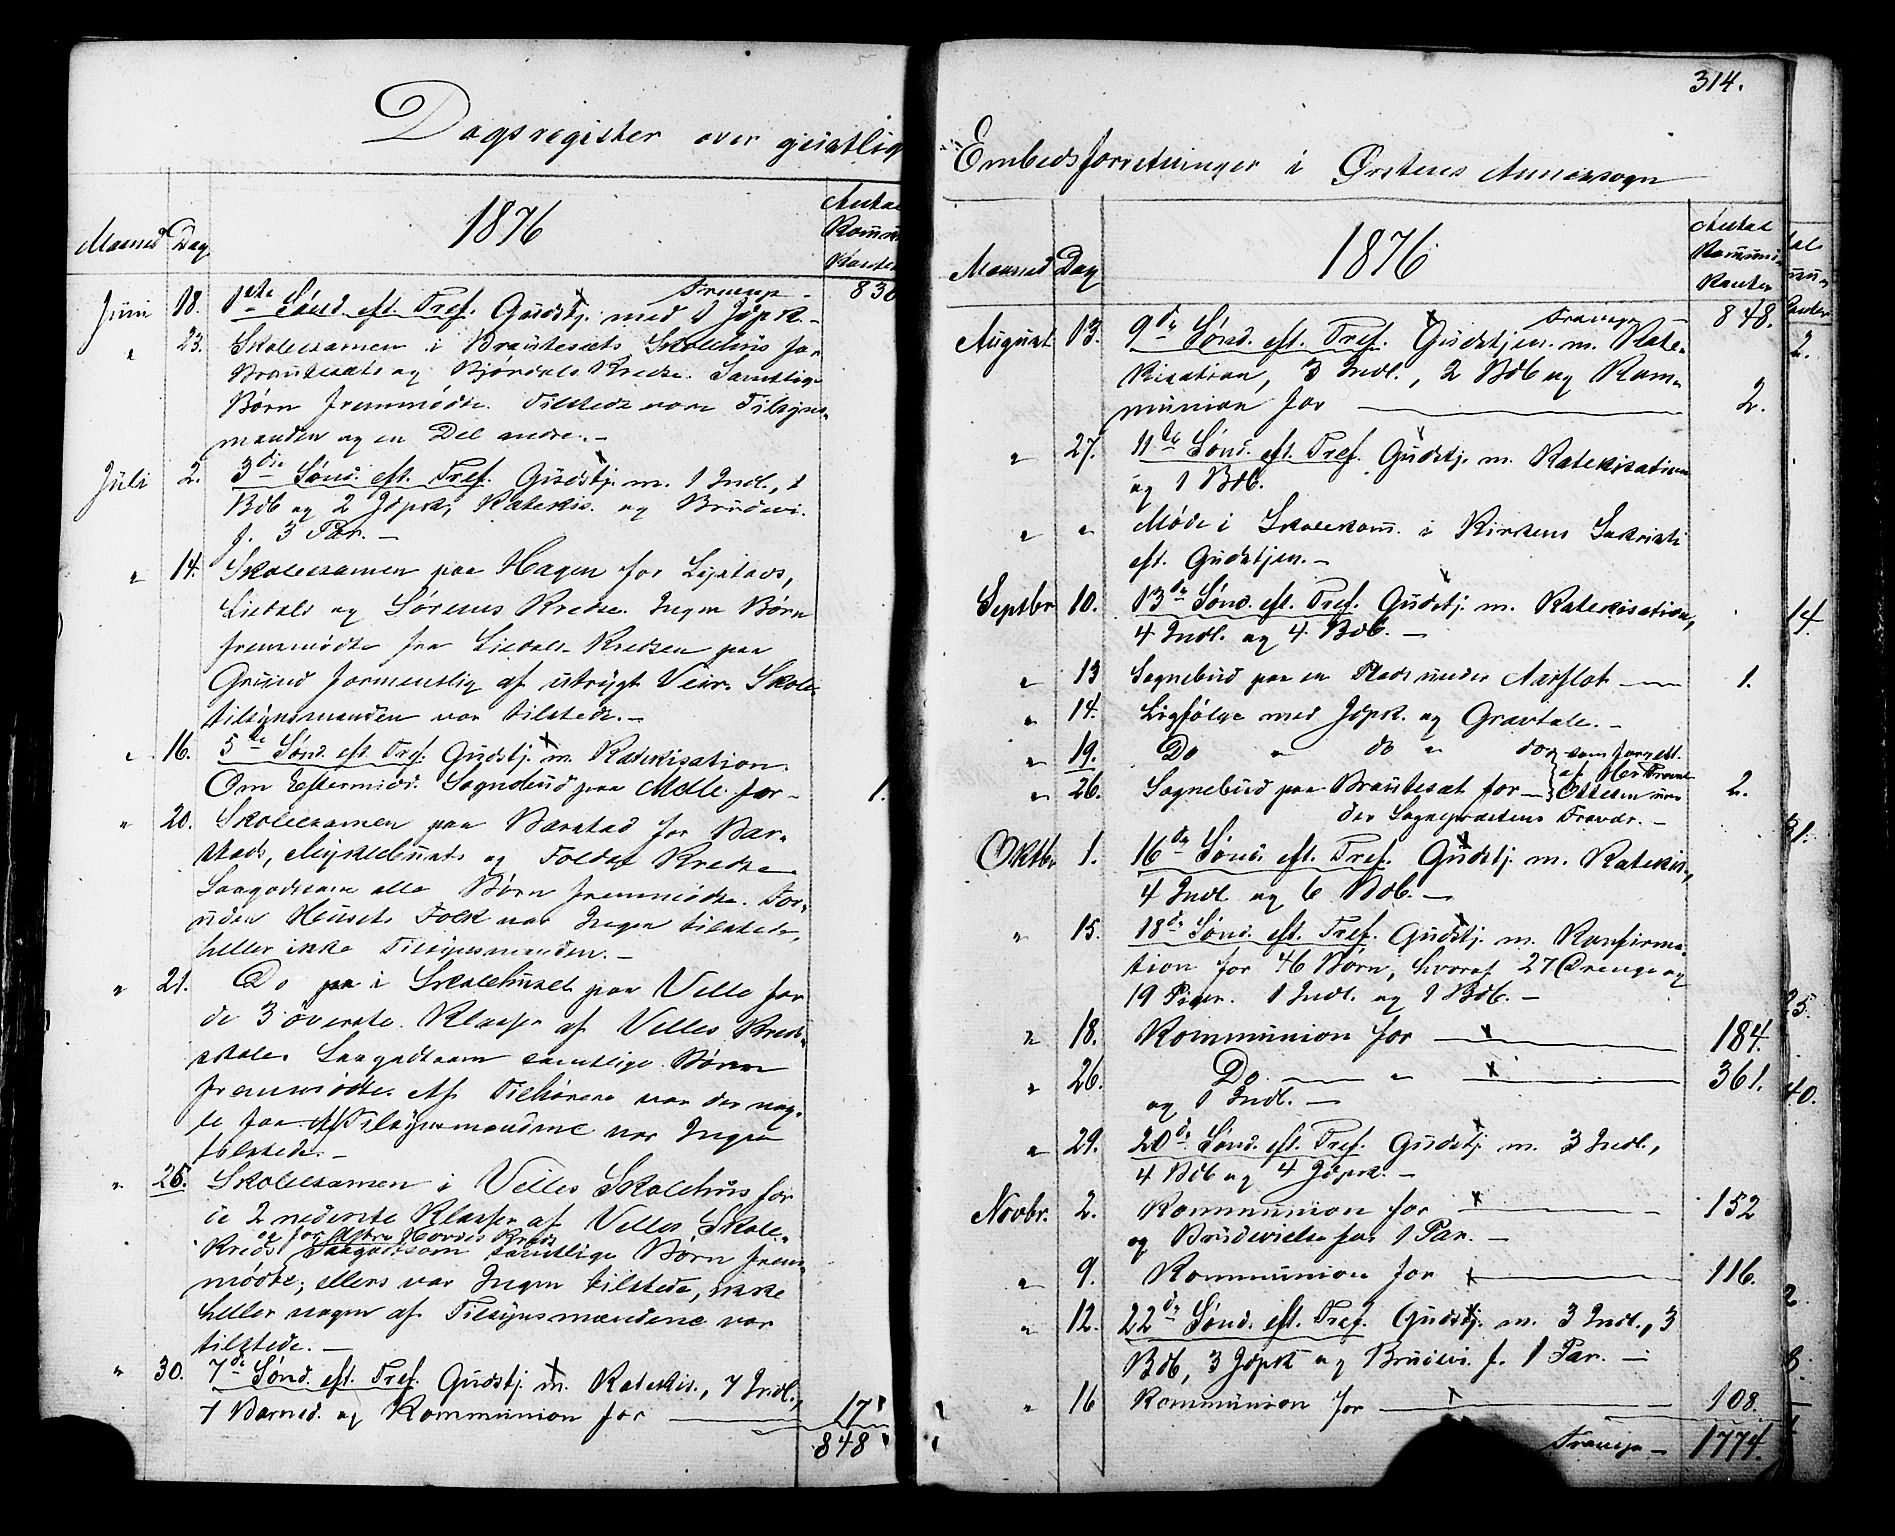 314.
Dagsregister over geistlig
Embedsforretninger i Ørstens Annexsogn
Maaned Dag 1876 Antal Kommu kanter
Transp. 830
Juni 18. 1ste Sønd. eft. Tref. Gudstj. med 1 Jdpk. -
" 23. Skoleexamen i Brautesæts Skolehus for
Brautesæts og Bjørdals Kredse. Samtlige
Børn fremmødte. Tilstede vare Tilsyns-
manden og en Del andre. -
Juli 2. 3die Sønd. eft. Tref. Gudstj. m. 1 Indl., 1
Bdb og 2 Jdpk, Katekis. og Brudevi.
f. 3 Par. -
" 14. Skoleexamen paa Hagen for
Liedals og Sørenes Kredse. Ingen Børn
fremmødte fra Liedals Kredsen paa
Grund formentlig af utrygt Veir. Skole-
tilsynsmanden var tilstede. -
" 16. 5te Sønd. eft. Tref. Gudstj. m. Katekisation.
Om Eftermidd. Sognebud paa Melle for - 1.
" 20. Skoleexamen paa Barstad for Bar-
stads, Myklebusts og Foldal Kredse
Saagodtsom alle Børn fremmødte. For-
uden Husets Folk var Ingen tilstede,
heller ikke Tilsynsmanden. -
" 21. Do i Skolehuset paa Velle for
de 3 øverste Klasser af Velles Kreds-
skole. Saagodtsom samtlige Børn
fremmødte. Af Tilhørere var der nog-
le faa Af Tilsynsmændene var Ingen
tilstede. -
" 25. Skoleexamen i Velles Skolehus for
de 2 nederste Klasser af Velles Skole-
og for Hovdes Kreds
Kreds, Saagodtsom samtlige Børn frem-
mødte; ellers var Ingen tilstede, ikke
heller nogen af Tilsynsmændene var
tilstede. -
" 30. 7de Sønd. eft. Tref. Gudstj. m. Katekis., 7 Indl.,
7 Barned. og Kommunion for 17
848
Maaned Dag 1876. Antal Kommuni- kanter
Transp. - 848.
August 13. 9de Sønd. eft. Tref. Gudstjen. m. Kate-
kisation, 3 Indl., 2 Bdb og Kom-
munion for 2.
" 27. 11te Sønd. eft. Tref. Gudstj. m. Katekisation
og 1 Bdb.
" " Møde i Skolekom. i Kirkens Sakristi
eft. Gudstjen. -
Septbr 10. 13de Sønd. eft. Tref. Gudstj. m. Katekisation,
4 Indl. og 4 Bdb. -
" 13 Sognebud paa en Plads under Aarflot 1.
" 14. Ligfølge med Jdpk. og Gravtale. -
" 19. Do " do " do som forrett.
af Hr. Provst
" 26. Sognebud paa Brautesæt for - Ottesen un- 2.
der Sognepræstens Fravær. -
Oktbr 1. 16de Sønd. eft. Tref. Gudstj. m. Katekis.,
4 Indl. og 6 Bdb. -
" 15. 18de Sønd. eft. Tref. Gudstj. m. Konfirma-
tion for 46 Børn, hvoraf 27 Drenge og
19 Piger. 1 Indl. og 1 Bdb. -
" 18. Kommunion for 184.
" 26. Do " 361.
og 1 Indl. -
" 29. 20de Sønd. eft. Tref. Gudstj. m. 3 Indl.,
4 Bdb og 4 Jdpk. -
Novbr. 2. Kommunion for 152
og Brudevielse for 1 Par. -
" 9. Kommunion for 116.
" 12. 22de Sønd. eft. Tref. Gudstj. m. 3 Indl., 3
Bdb, 3 Jdpk og Brudevi. f. 1 Par. -
" 16 Kommunion for 108.
Transp - 1774.